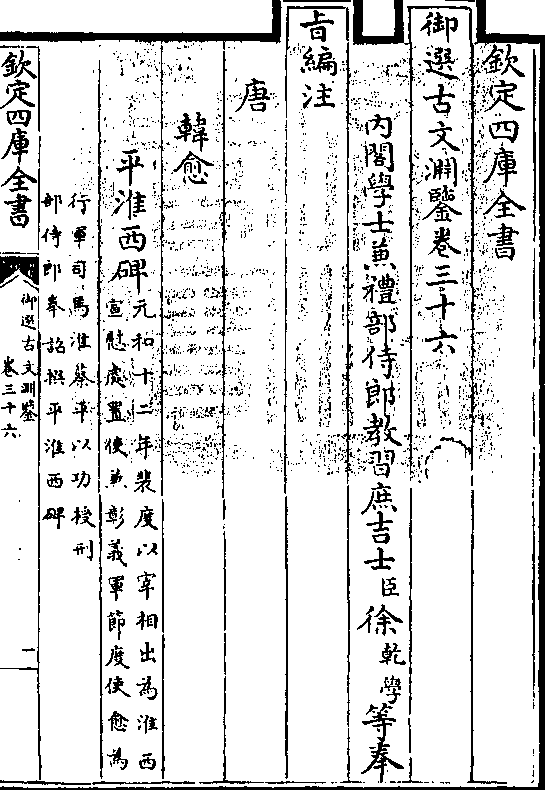 欽定四庫全書
御選古文淵鑒卷三十六
內閣學士兼禮部侍郎教習庶吉士臣徐乾學等奉
旨編注
唐
韓愈
平淮西碑元和十二年裴度以宰相出為淮西
宣慰處置使兼彰義軍節度使愈為
行軍司馬淮蔡平以功授刑
部侍郎奉詔撰平淮西碑
欽定四庫全書
御選古文淵鑒
卷三十六
一